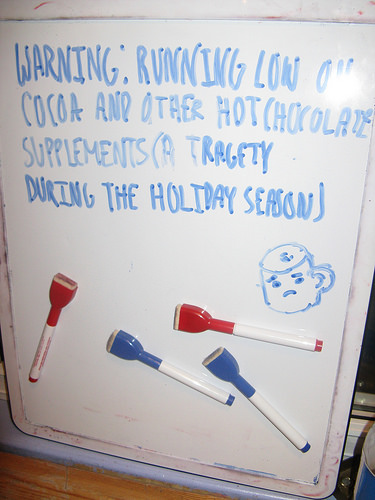 WARNING: RUNNING LOW ON
COCOA AND OTHER HOT CHOCOLATE
SUPPLEMENTS (A TRAGETY
DURING THE HOLIDAY SEASON)